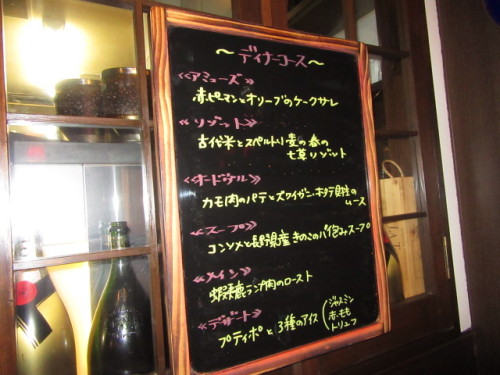 〜ディナーコース〜
《アミューズ》
赤ピーマンとオリーブのケークサレ
《リゾット》
古代米とスペルトリ麦の春の
七草リゾット
《オードヴル》
カモ肉のパテとズワイガニ・ホタテ貝柱の
ムース
《スープ》
コンソメと長野県産きのこのパイ包みスープ
《メイン》
蝦夷鹿ランプ肉のロースト
《デザート》
プティポと3種のアイス
ジャスミン
赤・もも
トリュフ